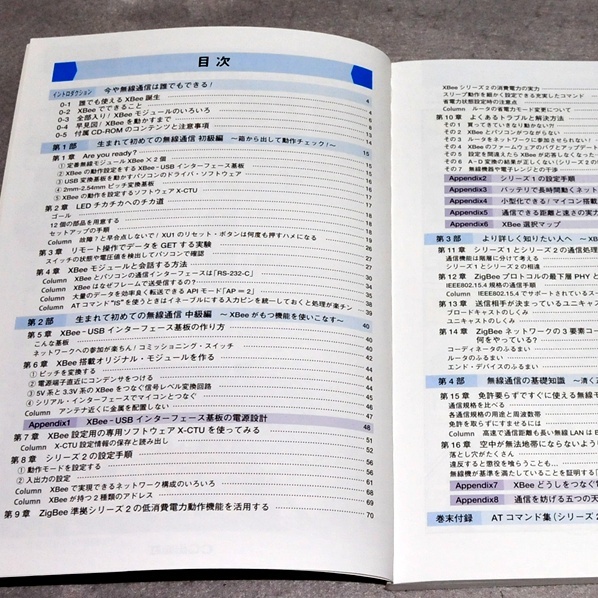 目次
イントロダクション 今や無線通信は誰でもできる! 4
0-1 誰でも使える XBee 誕生
0-2 XBee でできること
0-3 全部入り/ XBee モジュールのいろいろ
0-4 早見図/ XBee を動かすまで
0-5 付属 CD-ROM のコンテンツと注意事項 14
第1部 生まれて初めての無線通信 初級編 ~箱から出して動作チェック!~ 15
第1章 Are you ready?
① 定番無線モジュール XBee × 2 個
② XBee の動作設定をする XBee - USB インターフェース基板
③ USB 変換基板を動かすパソコンのドライバ・ソフトウェア
④ 2mm-2.54mm ピッチ変換基板
⑤ XBee の動作を設定するソフトウェア X-CTU
第2章 LED チカチカへのチカ道
ゴール
12 個の部品を用意する
セットアップの手順
Column 故障?と早合点しないで/ XU1 のリセット・ボタンは何度も押すハメになる
第3章 リモート操作でデータを GET する実験
スイッチの状態や電圧値を検出してパソコンで確認 27
第4章 XBee モジュールと会話する方法
Column XBee とパソコンの通信インターフェースは「RS-232-C」
Column XBee はなぜフレームで送受信するの?
Column 大量のデータを効率良く転送できる API モード「AP = 2」
Column AT コマンド"IS"を使うときはイネーブルにする入力ピンを統一しておくと処理が楽チン 39
第2部 生まれて初めての無線通信 中級編 ~XBee がもつ機能を使いこなす~ 40
第5章 XBee - USB インターフェース基板の作り方
こんな基板
ネットワークへの参加が楽ちん/コミッショニング・スイッチ
第6章 XBee 搭載オリジナル・モジュールを作る
① ピッチを変換する
② 電源端子直近にコンデンサをつける
③ 5V 系と 3.3V 系の XBee をつなぐ信号レベル変換回路
④ シリアル・インターフェースでマイコンとつなぐ
Column アンテナ近くに金属を配置しない 47
Appendix1 XBee - USB インターフェース基板の電源設計 48
第7章 XBee 設定用の専用ソフトウェア X-CTU を使ってみる 51
Column X-CTU 設定情報の保存と読み出し 52
第8章 シリーズ 2 の設定手順 56
① 動作モードを設定する 56
② 入出力の設定 61
Column XBee で実現できるネットワーク構成のいろいろ 68
Column XBee が持つ 2 種類のアドレス 69
第9章 ZigBee 準拠シリーズ 2 の低消費電力動作機能を活用する 70
XBee シリーズ 2 の消費電力の実力
スリープ動作を細かく設定できる充実したコマンド
省電力状態設定時の注意点
Column ルータの省電力モード変更について
第10章 よくあるトラブルと解決方法
その1 買ってきているなり動かない?!
その2 XBee とパソコンがつながらない
その3 ルータをネットワークに参加させられない
その4 XBee のファームウェアのバグとアップデート
その5 設定を間違えたら XBee が応答しなくなった
その6 A - D 変換の結果が正しくない(シリーズ 2 の
その7 無線機器や電子レンジとの干渉
Appendix2 シリーズ 1 の設定手順
Appendix3 バッテリで長時間動くネット
Appendix4 小型化できる/マイコン搭載
Appendix5 通信できる距離と速さの実力
Appendix6 XBee 選択マップ
第3部 より詳しく知りたい人へ ~XBee
第11章 シリーズ 1 とシリーズ 2 の通信処理
通信機能は階層に分けて考える
シリーズ 1 とシリーズ 2 の相違
第12章 ZigBee プロトコルの最下層 PHY と
IEEE802.15.4 規格の通信手順
Column IEEE802.15.4 でサポートされているスー
第13章 送信相手が決まっているユニキャス
ブロードキャストのしくみ
ユニキャストのしくみ
第14章 ZigBee ネットワークの 3 要素コー
何をやっている?
コーディネータのふるまい
ルータのふるまい
エンド・デバイスのふるまい
第4部 無線通信の基礎知識 ~清く正
第15章 免許要らずですぐに使える無線モ
通信規格を比べる
各通信規格の用途と周波数帯
免許を取らずにすませるには
Column 高速で通信距離も長い無線 LAN は B
第16章 空中が無法地帯にならないよう
落とし穴がたくさん
違反すると懲役を喰らうことも…
無線機が基準を満たしていることを証明する「
Appendix7 XBee どうしをつなぐ
Appendix8 通信を妨げる五つの天
巻末付録 AT コマンド集(シリーズ 2